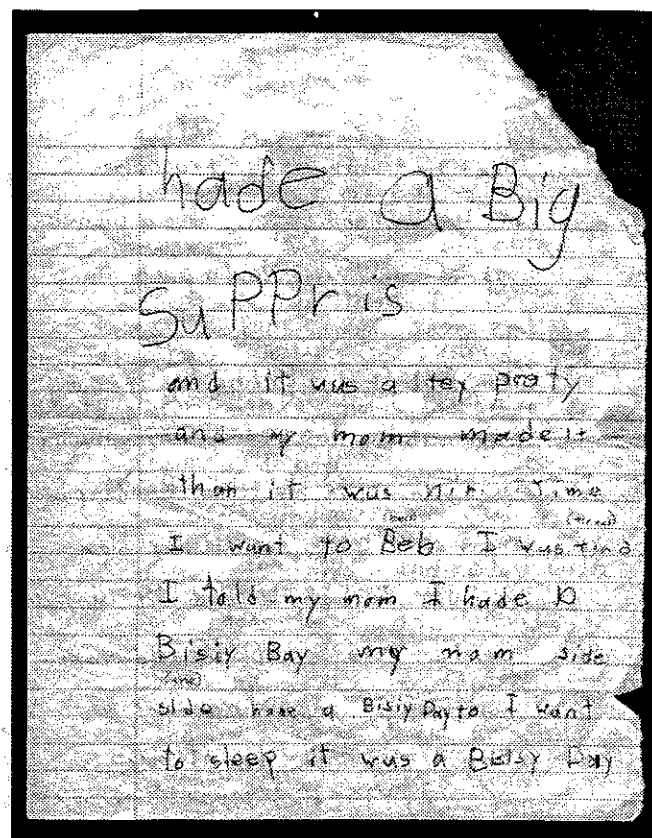 hade a Big
SuPPris
and it wus a tey praty
and my mom made it
than it was nit Time
I want to Beb I wus tird
(tired)
I told my mom I hade a
Bisiy Bay my mom side
slde have a Bisiy Day to I want
to sleep it wus a Beisy Day